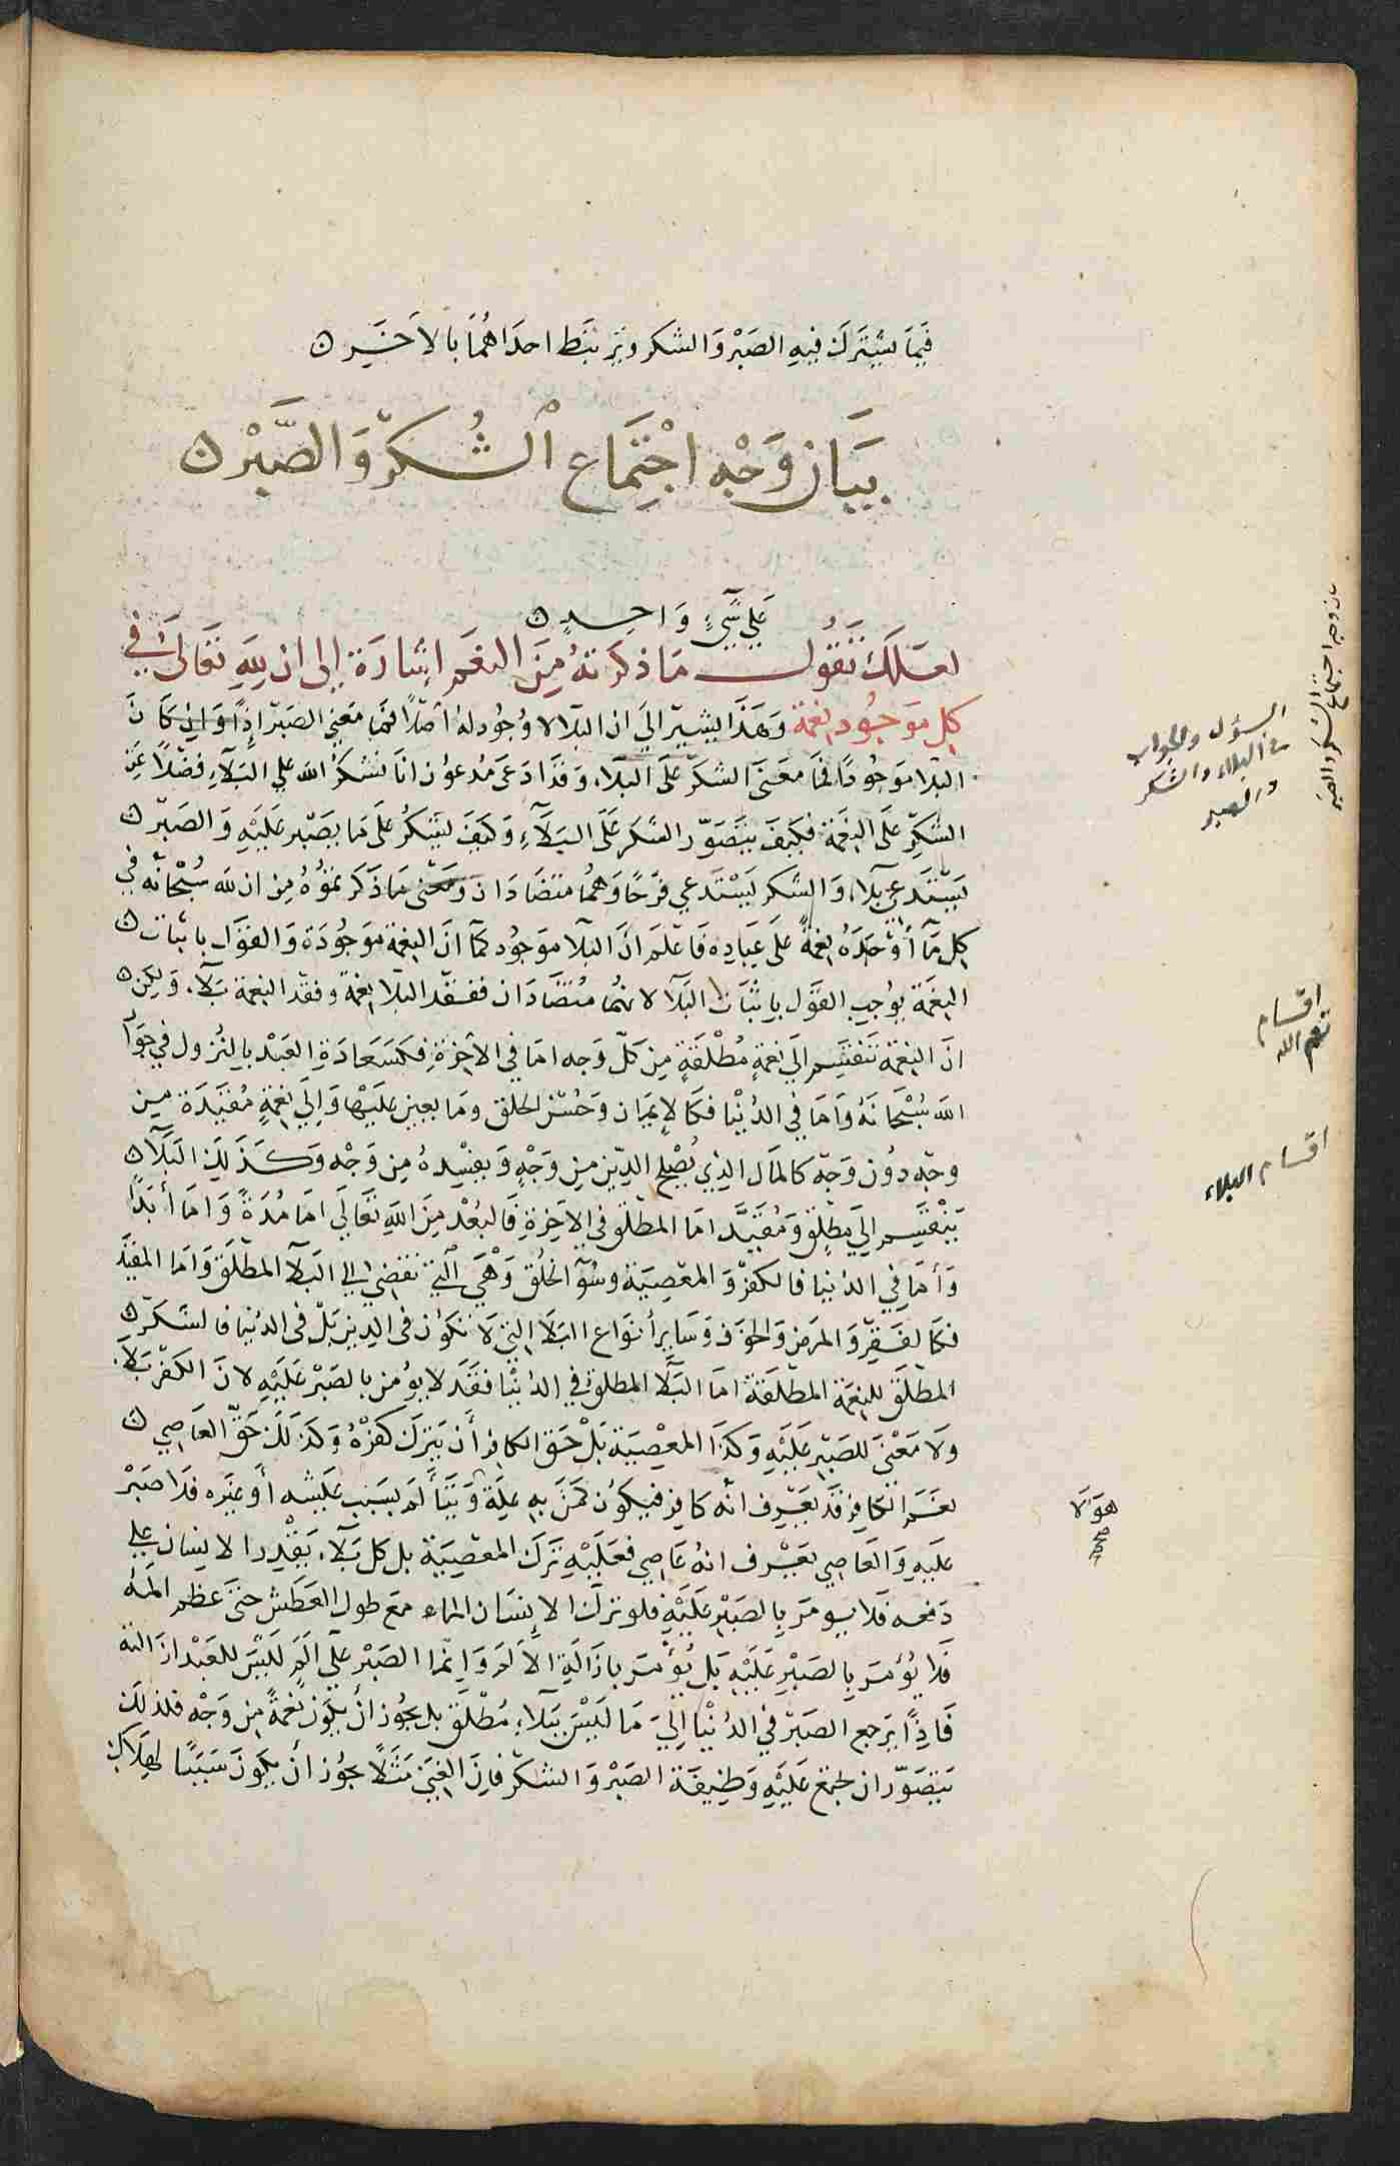 فيما يشترك فيه الصبر والشكر ويرتبط احداهما بالاخر ن
بيان وجه اجتماع الشكر والصبر ن
على شيء واحد ن
لعلك تقول ما ذكرته من النعم اشارة إلى ان لله تعالى في
كل موجود نعمة وهذا يشير الى ان البلا لا وجود له اصلا فما معنى الصبر إذا وان كان
البلا موجودا فما معنى الشكر على البلاء وقد ادعى مدعون انا نشكر الله على البلاء فضلا عن
الشكر على النعمة فكيف يتصور الشكر على البلاء وكيف يشكر على ما يصبر عليه والصبر ن
يستدعي بلاء والشكر يستدعي فرحا وهما متضادان ومعنى ما ذكرتموه من ان لله سبحانه في
كل ما أوجده نعمة على عباده فاعلم ان البلا موجود كما ان النعمة موجودة والقول باثبات ن
النعمة يوجب القول باثبات البلا لانهما متضادان ففقد البلا نعمة وفقد النعمة بلاء ولكن ن
ان النعمة تنقسم الى نعمة مطلقة من كل وجه اما في الاخرة فكسعادة العبد بالنزول في جوا
الله سبحانه واما في الدنيا فكالايمان وحسن الخلق وما يعين عليها والى نعمة مقيدة من
وجه دون وجه كالمال الذي يصلح الدين من وجه ويفسده من وجه وكذلك البلا ن
ينقسم الى مطلق ومقيد اما المطلق في الاخرة فالبعد من الله تعالى اما مدة واما أبدا
وأما في الدنيا فالكفر والمعصية وسوء الخلق وهي التي تفضي الى البلا المطلق واما المقيد
فكالفقر والمرض والخوف وسائر أنواع البلا التي لا تكون في الدين بل في الدنيا فالشكر ن
المطلق للنعمة المطلقة اما البلا المطلق في الدنيا فقد لا يؤمر بالصبر عليه لان الكفر بلاء
ولا معنى للصبر عليه وكذا المعصية بل حق الكافر أن يترك كفره وكذلك حق العاصي ن
نعم الكافر قد يعرف انه كافر فيكون كمن به علة ويتألم بسبب غشية أو غيره فلا صبر
عليه والعاصي يعرف انه عاصي فعليه ترك المعصية بل كل بلاء يقدر الانسان على
دفعه فلا يومر بالصبر عليه فلو ترك الانسان الماء مع طول العطش حتى عظم المه
فلا يؤمر بالصبر عليه بل يؤمر بازالة الالم وانما الصبر على الم ليس للعبد ازالته
فاذا يرجع الصبر في الدنيا الى ما ليس ببلاء مطلق بل يجوز أن يكون نعمة من وجه فلذلك
يتصور ان يجتمع عليه وظيفة الصبر والشكر فان الغنى مثلا يجوز أن يكون سببا لهلاك
بيان وجه اجتماع الشكر والصبر
السؤل والجواب
في البلاء والشكر
والصبر
اقسام
نعم الله
اقسام البلاء
هؤلا